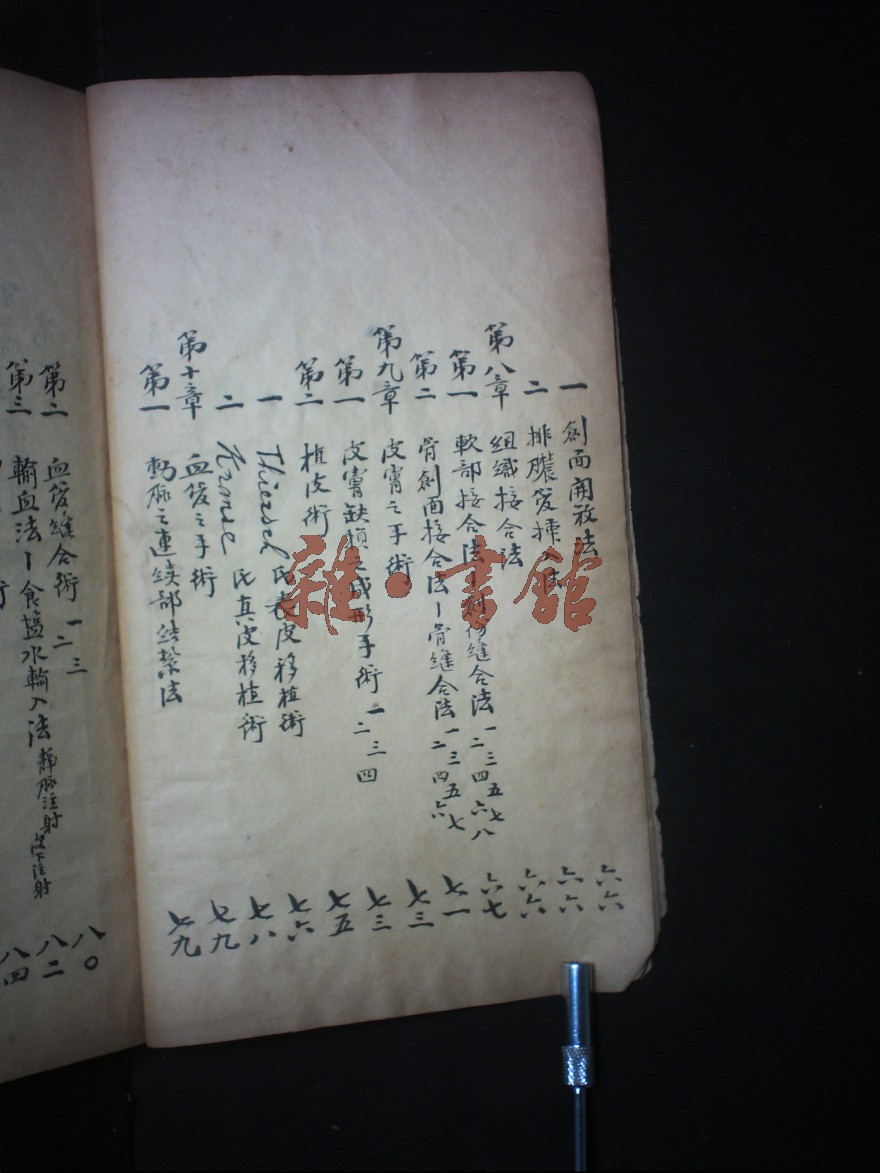 一 創面開放法 六六
二 排膿管挿 法 六六
第八章 組織接合法 六六
第一 軟部接合法ー創傷縫合法 一二三四五六七八 六七
第二 骨創面接合法ー骨縫合法 一二三四五六七 七一
第九章 皮膚之手術 七三
第一 皮膚缺損之成形手術 一二三四 七三
第二 植皮術 七五
一 Thiersch氏表皮移植術 七六
二 Krause氏真皮移植術 七八
第十章 血管之手術 七九
第一 動脈之連続部結紮法 七九
第二 血管縫合術 一二三 八〇
第三 輸血法ー食塩水輸入法 静脈注射 皮下注射 八二
術 八四
雜·書館